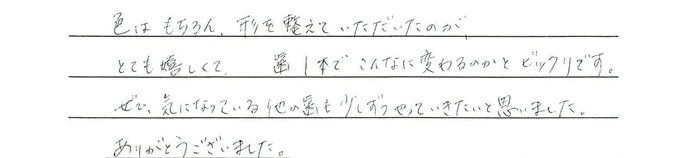 色はもちろん、形を整えていただいたのが、
とても嬉しくて、歯1本でこんなに変わるのかとビックリです。
ぜひ、気になっている他の歯も少しずつやっていきたいと思いました。
ありがとうございました。